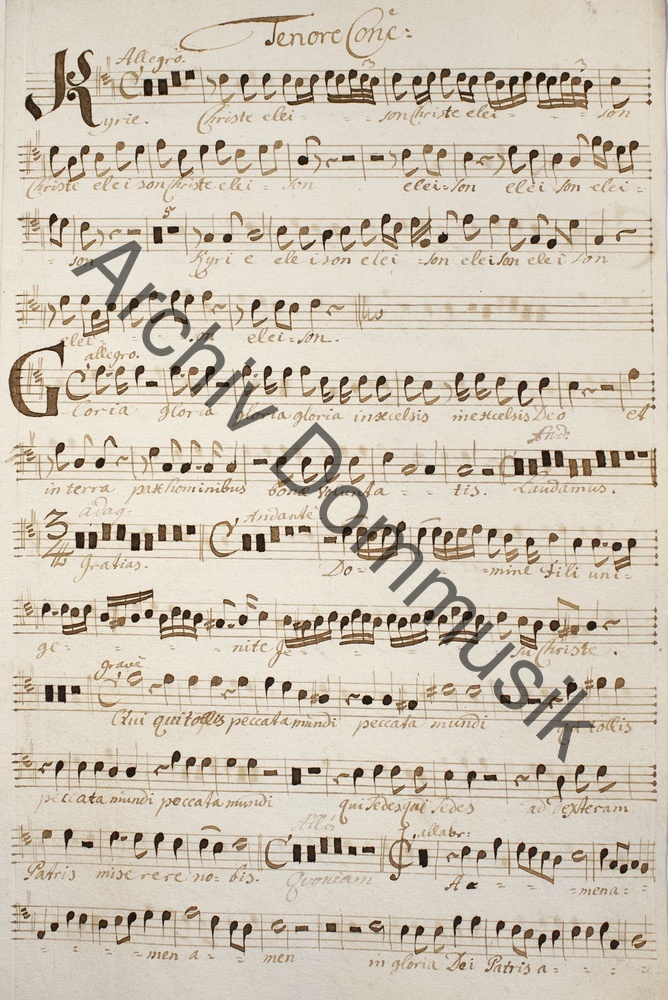 Tenore Conc:
Allegro.
Kyrie. Christe elei - - - son Christe elei - - - son
Christe eleison Christe elei - son elei - son elei son elei -
son 5 Kyrie eleison elei - son eleison elei son
elei - - son elei - son.
allegro.
Gloria gloria gloria gloria in excelsis in excelsis Deo et
And:
in terra pax hominibus bonae volunta - - tis. Laudamus.
adag: Andante
3/4 Gratias. Do - - - mine fili uni -
ge - - - nite Je - - - - su Christe.
grave
Qui qui tollis peccata mundi peccata mundi qui tollis
peccata mundi peccata mundi qui sedes qui sedes ad dexteram
allabr:
Patris miserere nobis. Quoniam A - - - - mena -
- - - men a - - men in gloria Dei Patris a - - -
Archiv Dommusik